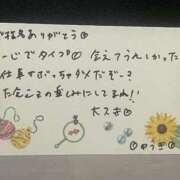 指名ありがとう
じでタイプ 会えてうれしかった
仕事すばっちゃダメだぞー?
た会えるの楽しみにしてるね!!
大スき
ゆうき